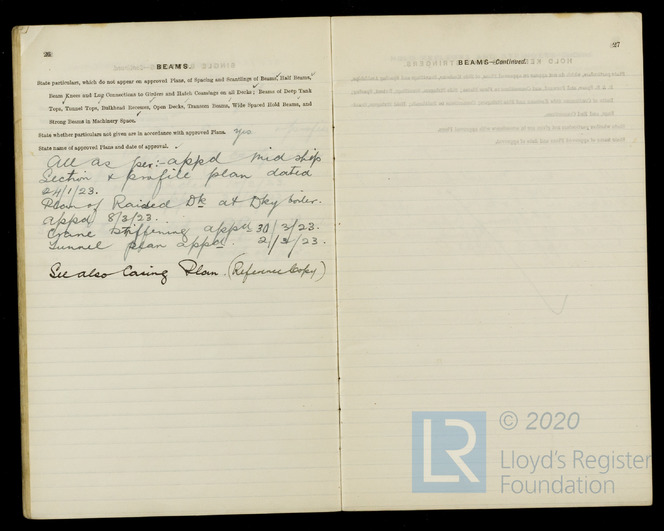 26
BEAMS.
State particulars, which do not appear on approved Plans, of Spacing and Scantlings of Beams, Half Beams,
Beam Knees and Lug Connections to Girders and Hatch Coamings on all Decks; Beams of Deep Tank
Tops, Tunnel Tops, Bulkhead Recesses, Open Decks, Transom Beams, Wide Spaced Hold Beams, and
Strong Beams in Machinery Space.
State whether particulars not given are in accordance with approved Plans. yes
State name of approved Plans and date of approval.
All as per:- appd midship
Section & profile plan dated
24/1/23.
Plan of Raised Dk at Dky boiler.
appd 8/3/23.
Crane stiffening appd 30/3/23.
Tunnel plan appd. 21/3/23.
See also Casing Plan. (Reference Copy)
27
BEAMS—Continued.
LR
© 2020
Lloyd's Register
Foundation